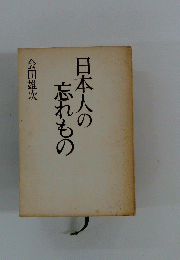 日本人の
忘れもの
会田雄次